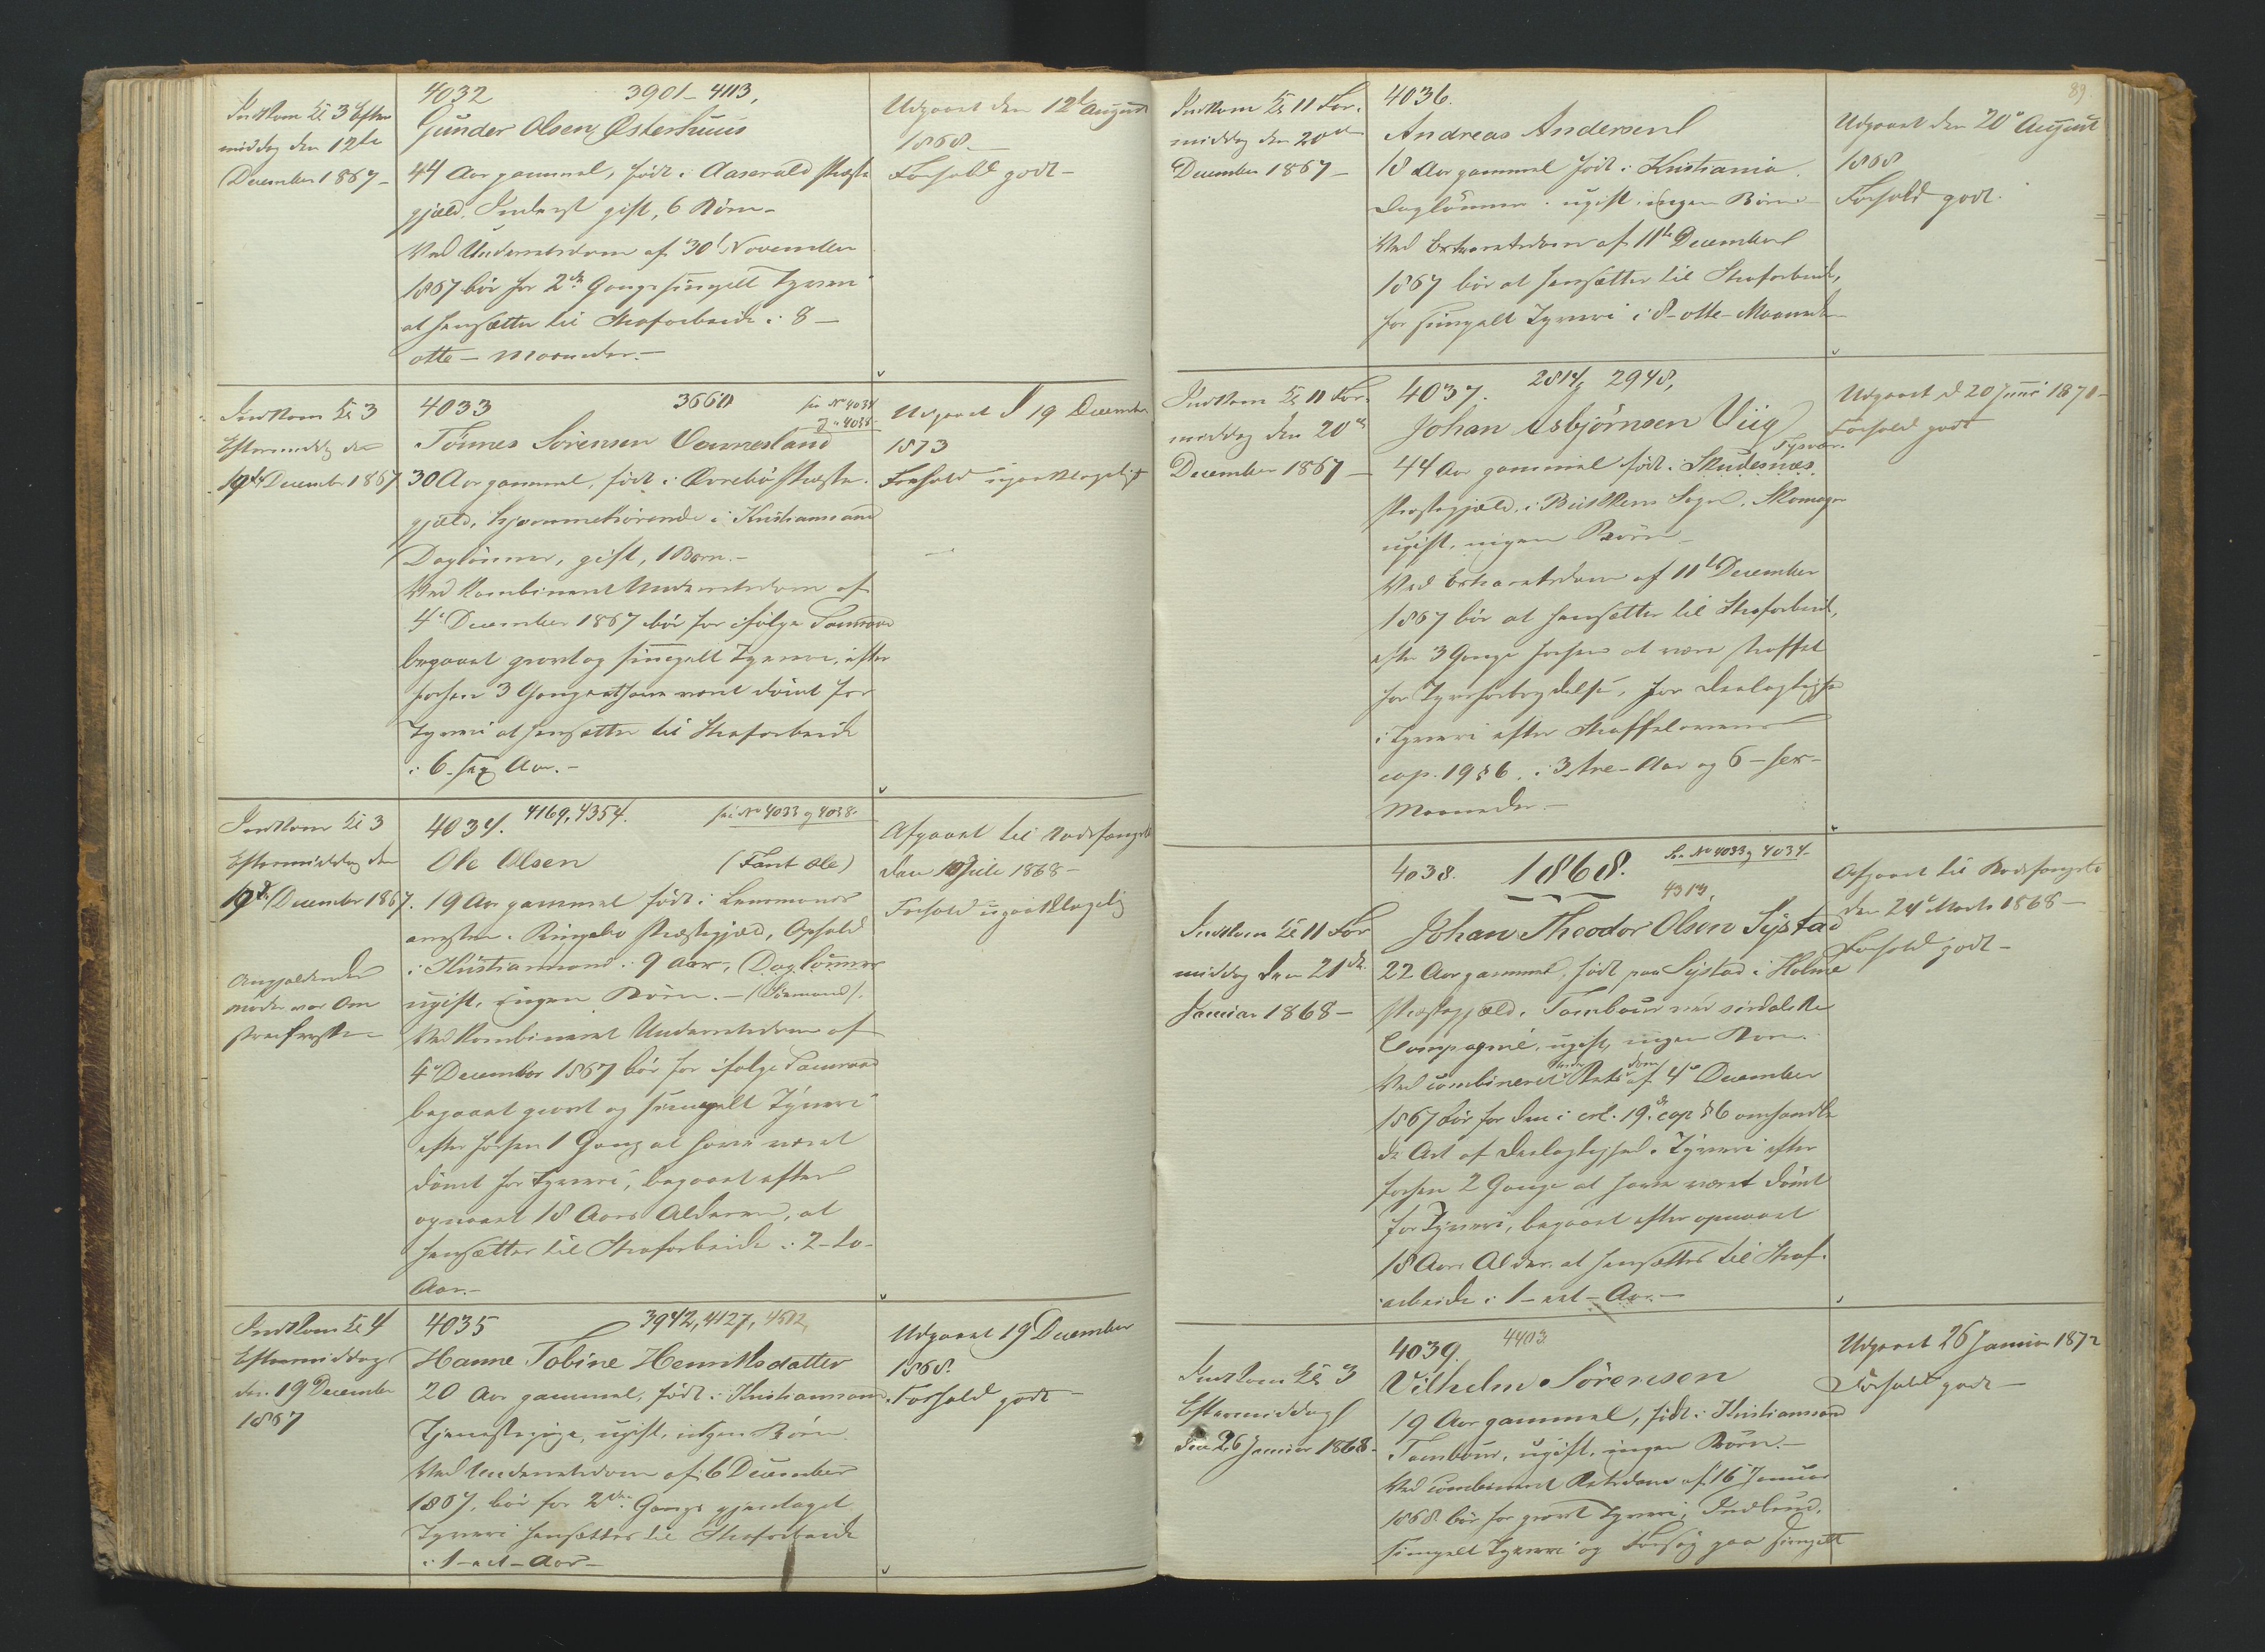 Indkom Kl 3 Efter
middag den 12te
December 1867 –
4032 3901 – 4113,
Gunder Olsen Østerhuus
44 Aar gammel, født i Aaserald Præste
gjæld, Inderst gift, 6 Børn –
Ved Underretsdom af 30t November
1867 bør for 2den Gang simpelt Tyveri
at hensættes til Strafarbeide i 8 –
otte – Maaneder. –
Udgaaet den 12t August
1868. –
Forhold godt –
Indkom Kl 3
Eftermiddag den
19de December 1867
4033 3660 see No 4034
og 4038
Tönnes Sörensen Vennesland
30 Aar gammel, født i Øvrebö Præste-
gjæld, hjemmehörende i Kristianssand
Daglönner, gift, 1 Barn. –
Ved Kombineret Underretsdom af
4de December 1867 bör for ifölge Samraad
begaaet grovt og simpelt Tyveri, efter
forhen 3 Gange at have været dömt for
Tyveri at hensættes til Strafarbeide
i 6 – sex Aar. –
Udgaaet d 19 December
1873
Forhold upaaklageligt
Indkom Kl 3
Eftermiddag den
19de December 1867.
Angjældendes
moder var Om
streiferske
4034. 4169, 4354. see No 4033 og 4038
Ole Olsen (Fant Ole)
19 Aar gammel födt i Lensmands
arresten i Ringebo Præstegjæld, Ophold
i Kristianssand i 9 Aar, Daglönner
ugift, ingen Börn. – (Sömand).
Ved Kombineret Underretsdom af
4de December 1867 bör for ifölge Samraad
begaaet grovt og simpelt Tyveri
efter forhen 1 Gang at have været
dömt for Tyveri, begaaet efter
opnaaet 18 Aars Alderen, at
hensættes til Strafarbeide i 2 – to –
Aar. –
Afgaaet til Bodsfængslet
den 10 Juli 1868 –
Forhold upaaklagelig
Indkom Kl 4
Eftermiddag
den 19 December
1867
4035 3942, 4127, 4512
Hanne Tobine Henriksdatter
20 Aar gammel, födt i Kristianssand.
Tjenestepige, ugift, ingen Börn.
Ved Underretsdom af 6 December
1867, bör for 2den Gang gjentaget
Tyveri hensættes til Strafarbeide
i 1 – eet – Aar –
Udgaaet 19 December
1868.
Forhold godt –
89.
Indkom Kl 11 For-
middag den 20de
December 1867 –
4036.
Andreas Andersen
18 Aar gammel födt i Kristiania.
Daglönner. ugift. ingen Börn –
Ved Extraretsdom af 11te December
1867 bör at hensættes til Strafarbeide,
for simpelt Tyveri i 8 – otte – Maaneder –
Udgaaet den 20de August
1868
Forhold godt.
Indkom Kl 11 For-
middag den 20de
December 1867 –
4037. 2814, 2948,
Johan Asbjörnsen Viig
Tysvær.
44 Aar gammel födt i Skudesnæs
Præstegjæld, i Bukken Sogn. Skomager
ugift, ingen Börn –
Ved Extraretsdom af 11te December
1867 bör at hensættes til Strafarbeide,
efter 3 Gange forhen at være straffet
for Tyveforbrydelse, for Deelagtighed
i Tyveri efter Straffelovens
cap. 19 § 6. i 3 – tre – Aar og 6 – sex –
Maaneder –
Udgaaet d 20 Juni 1871 –
Forhold godt
Indkom Kl 11 For
middag den 21de
Januar 1868 –
4038. 1868. See No 4033 og 4034
4313,
Johan Theodor Olsen Systad
22 Aar gammel, födt paa Systad i Holme
Præstegjæld, Tambour ved
Compagnie, ugift, ingen Börn.
Ved combineret Under Rets dom af 4de December
1867 bör for den i crl. 19de cap § 6 omhandle
de Art af Deelagtighed i Tyveri efter
forhen 2 Gange at have været dömt
for Tyveri, begaaet efter opnaaet
18 Aars Alder, at hensættes til Straf-
arbeide i 1 – eet – Aar. –
Afgaaet til Bodsfængslet
den 24de Marts 1868 –
Forhold godt –
Indkom Kl 3
Eftermiddag
den 26 Januar 1868 –
4039. 4403
Vilhelm Sörensen
19 Aar gammel, födt i Kristianssand
Tambour, ugift, ingen Börn. –
Ved combineret Retsdom af 16 Januar
1868 bör for grovt Tyveri, Indbrud,
simpelt Tyveri og Forsög paa simpelt
Udgaaet 26 Januar 1872
Forhold godt –